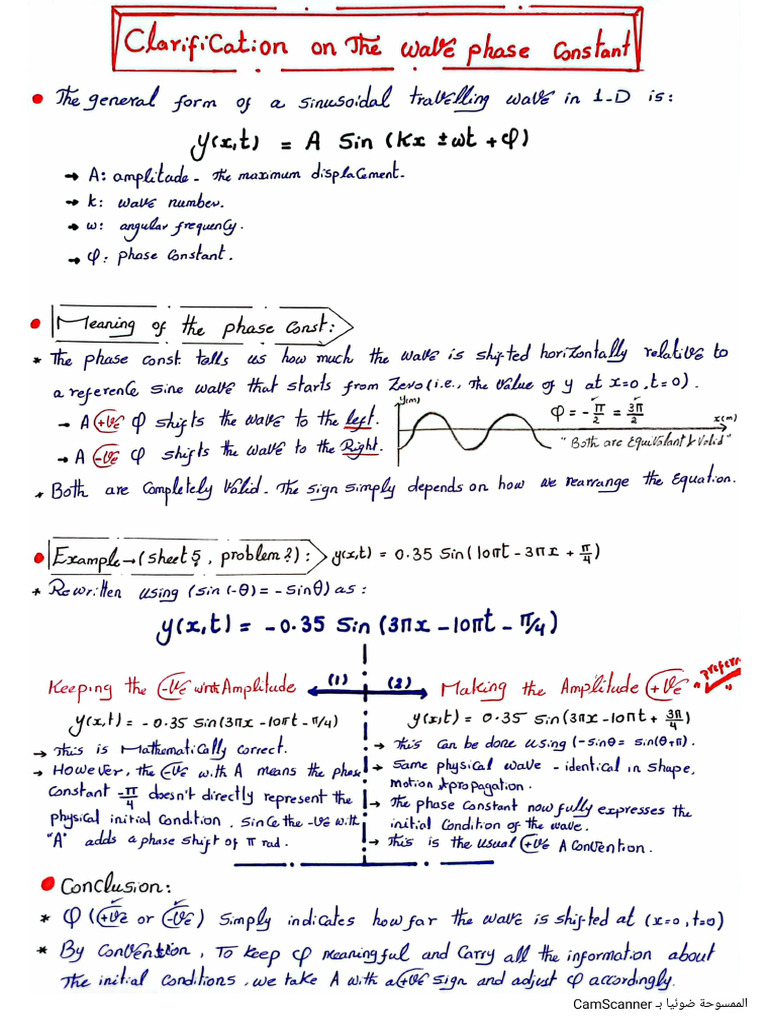 Clarification on The wave phase Constant
• The general form of a sinusoidal travelling wave in 1-D is:
y(x,t) = A Sin (Kx ± ωt + φ)
→ A: amplitude - The maximum displacement.
→ k: wave number.
→ ω: angular frequency.
→ φ: phase Constant.
• Meaning of the phase Const:
* The phase const. tells us how much the wave is shifted horizontally relative to
a reference sine wave that starts from Zero (i.e., The value of y at x=0, t=0).
→ A +ve φ shifts the wave to the left.
→ A -ve φ shifts the wave to the Right.
y(m)
x(m)
φ = - π/2 = 3π/2
"Both are Equivalent & Valid"
* Both are Completely Valid. The sign simply depends on how we rearrange the Equation.
• Example → (sheet 5, problem 2): y(x,t) = 0.35 Sin(10πt - 3πx + π/4)
* Rewritten using (sin (-θ) = - sinθ) as:
y(x,t) = -0.35 Sin (3πx - 10πt - π/4)
(1) (2)
Keeping the -ve with Amplitude
y(x,t) = -0.35 sin(3πx - 10πt - π/4)
→ This is Mathematically correct.
→ However, the -ve with A means the phase
Constant -π/4 doesn't directly represent the
physical initial condition, since the -ve with
"A" adds a phase shift of π rad.
Making the Amplitude +ve
y(x,t) = 0.35 sin(3πx - 10πt + 3π/4)
→ This can be done using (-sinθ = sin(θ+π).
→ Same physical wave - identical in shape,
motion & propagation.
→ The phase Constant now fully expresses the
initial Condition of the wave.
→ This is the usual +ve A Convention.
• Conclusion:
* φ (+ve or -ve) Simply indicates how far the wave is shifted at (x=0, t=0)
* By Convention, To keep φ meaningful and Carry all the information about
The initial conditions, we take A with a +ve sign and adjust φ accordingly.
الممسوحة ضوئيا بـ CamScanner